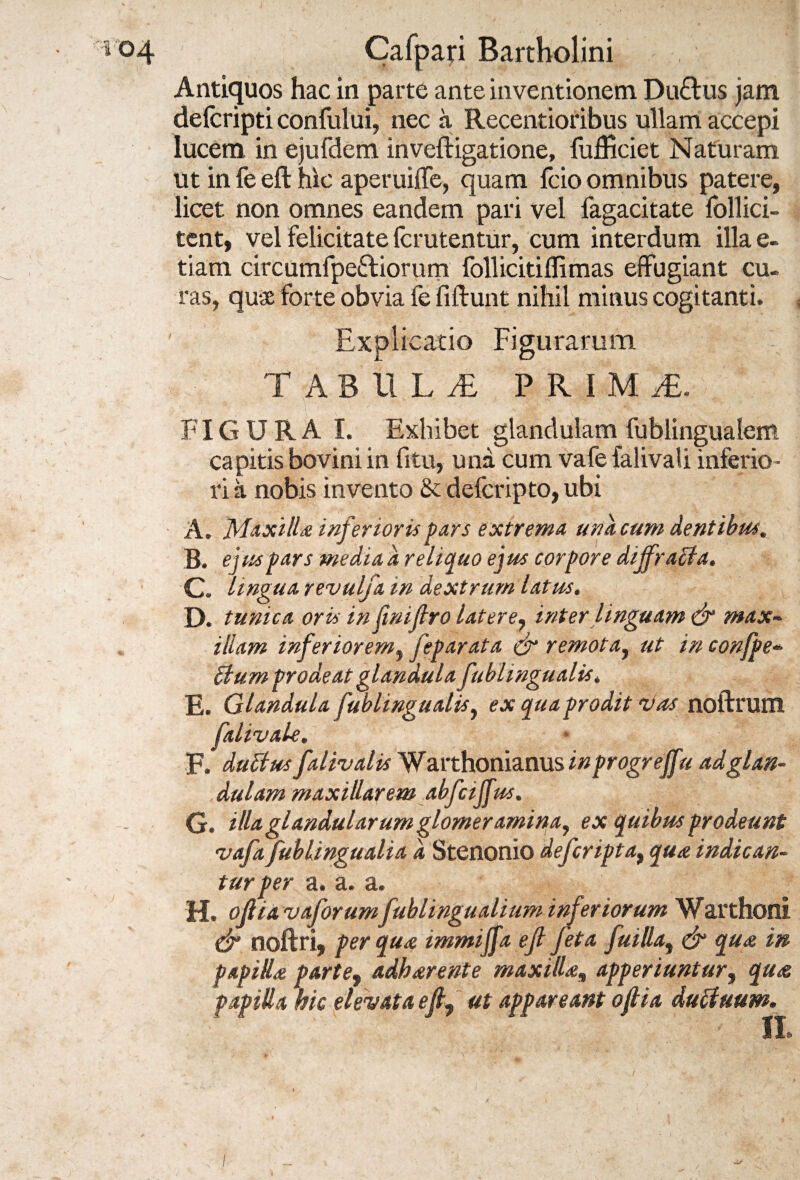 104 Caſpari Bartholini
Antiquos hac in parte ante inventionem Ductus jam
deſcripti conſului, nec à Recentioribus ullam accepi
lucem in ejuſdem inveſtigatione, ſufficiet Naturam
ut in ſe eſt hìc aperuiſſe, quam ſcio omnibus patere,
licet non omnes eandem pari vel ſagacitate ſollici-
tent, vel felicitate ſcrutentur, cum interdum illa e-
tiam circumſpectiorum ſollicitiſſimas effugiant cu-
ras, quæ forte obvia ſe ſiſtunt nihil minus cogitanti.
Explicatio Figurarum
TABULÆ PRIMÆ.
FIGURA I. Exhibet glandulam ſublingualem
capitis bovini in ſitu, unà cum vaſe ſalivali inferio-
ri à nobis invento & deſcripto, ubi
A. Maxillæ inferioris pars extrema unà cum dentibus.
B. ejus pars media à reliquo ejus corpore diffracta.
C. lingua revulſa in dextrum latus.
D. tunica oris in ſiniſtro latere, inter linguam & max-
illam inferiorem, ſeparata & remota, ut in conſpe-
ctum prodeat glandula ſublingualis.
E. Glandula ſublingualis, ex qua prodit vas noſtrum
ſalivale.
F. ductus ſalivalis Warthonianus in progreſſu ad glan-
dulam maxillarem abſciſſus.
G. illa glandularum glomeramina, ex quibus prodeunt
vaſa ſublingualia à Stenonio deſcripta, quæ indican-
tur per a. a. a.
H. oſtia vaſorum ſublingualium inferiorum Warthoni
& noſtri, per quæ immiſſa eſt ſeta ſuilla, & quæ in
papillæ parte, adhærente maxillæ, apperiuntur, quæ
papilla hic elevata eſt, ut appareant oſtia ductuum.
II.